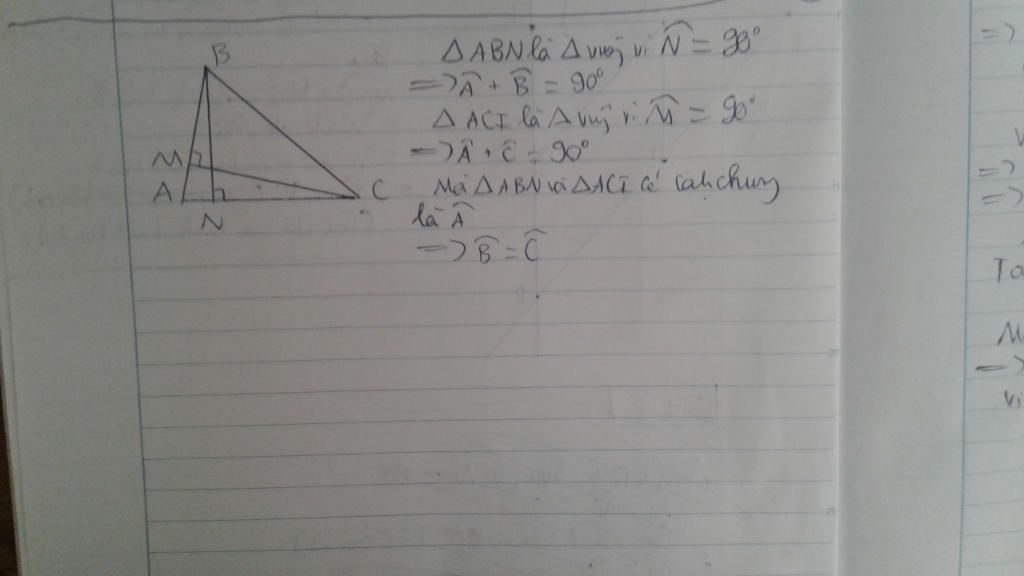 B
M
A
N
C
Δ ABN là Δ vuông vì N̂ = 90°
=> Â + B̂ = 90°
Δ ACI là Δ vuông vì M̂ = 90°
=> Â + Ĉ = 90°
Mà Δ ABN và Δ ACI có cạh chung
là Â
=> B̂ = Ĉ
=>
V
=>
=>
Ta
M
=>
Vì